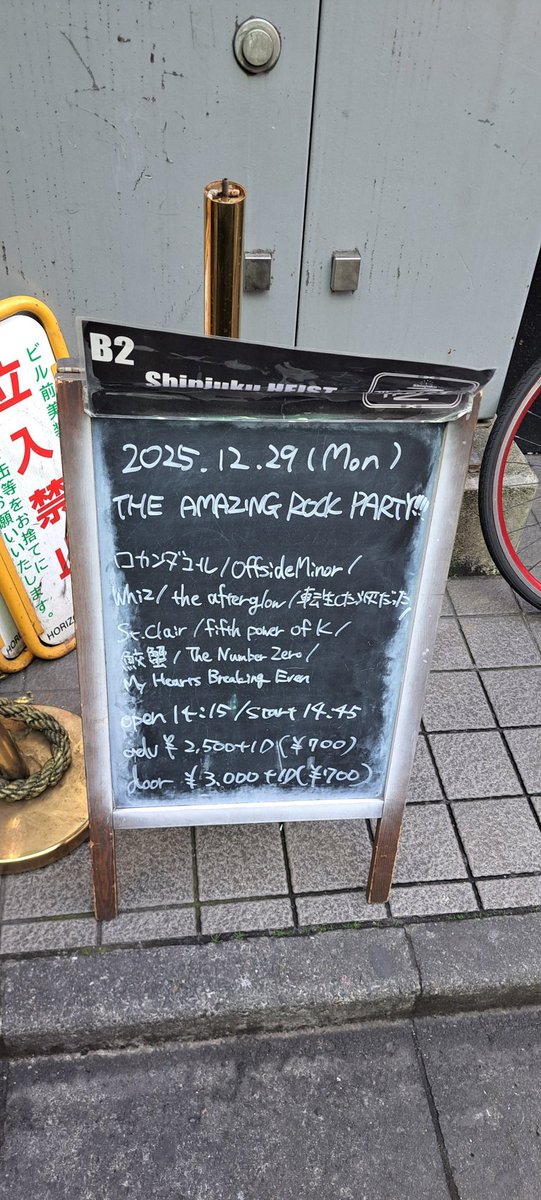 B2
Shinjuku HEIST
2025.12.29(Mon)
THE AMAZING ROCK PARTY!!!
ロカンダコール/OffsideMinor/
Whiz/the afterglow/転生したらKだった/
St.Clair/fifth power of K/
鮫蟹/The Number Zero/
My Hearts Breaking Even
open 14:15/start 14:45
adv ¥2,500+1D(¥700)
door ¥3,000+1D(¥700)
ビル前美
立入禁止
缶等をお捨てに
お願いいたします。
HORIZ